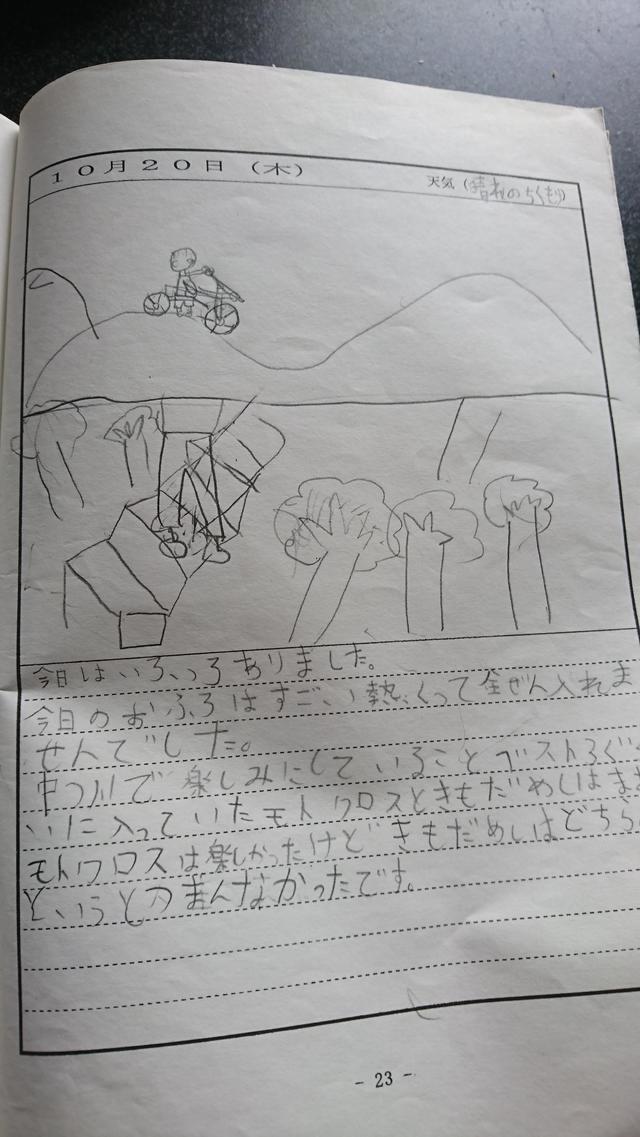 10月20日（木）
天気（晴れのちくもり）
今日はいろいろありました。
今日のおふろはすごい熱くって全ぜん入れま
せんでした。
中つ川で楽しみにしていることベスト3ぐ
いに入っていたモトクロスときもだめしはま
モトクロスは楽しかったけどきもだめしはどちら
というとつまんなかったです。
- 23 -